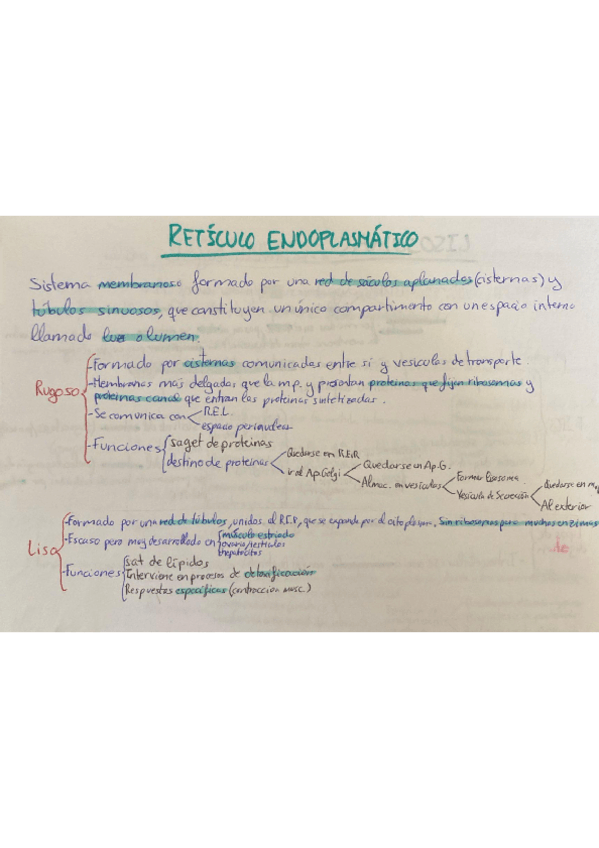 RETÍCULO ENDOPLASMÁTICO
Sistema membranoso formado por una red de sáculos aplanados (cisternas) y
túbulos sinuosos, que constituyen un único compartimento con un espacio interno
llamado luz o lumen.
Rugoso
-Formado por cisternas comunicadas entre si y vesículas de transporte.
-Membranas más delgadas que la m.p. y presentan proteínas que fijan ribosomas y
proteínas canal que entran las proteínas sintetizadas.
-Se comunica con
R.E.L.
espacio perinuclear
-Funciones
de proteínas
destino de proteínas
Quedarse en R.E.R
ir al Ap.Golgi
Quedarse en Ap.G.
Almac. en vesículas
Formar lisosoma
Vesícula de Secreción
Quedarse en
Al exterior
Liso
-Formado por una red de túbulos, unidos al R.E.R, que se expande por el citoplasma. Sin ribosomas pero muchas enzimas
-Escaso pero muy desarrollado en
músculo estriado
ovario/testículos
hepatocitos
-Funciones
de lípidos
Interviene en procesos de detoxificación
Respuestas específicas (contracción musc.)